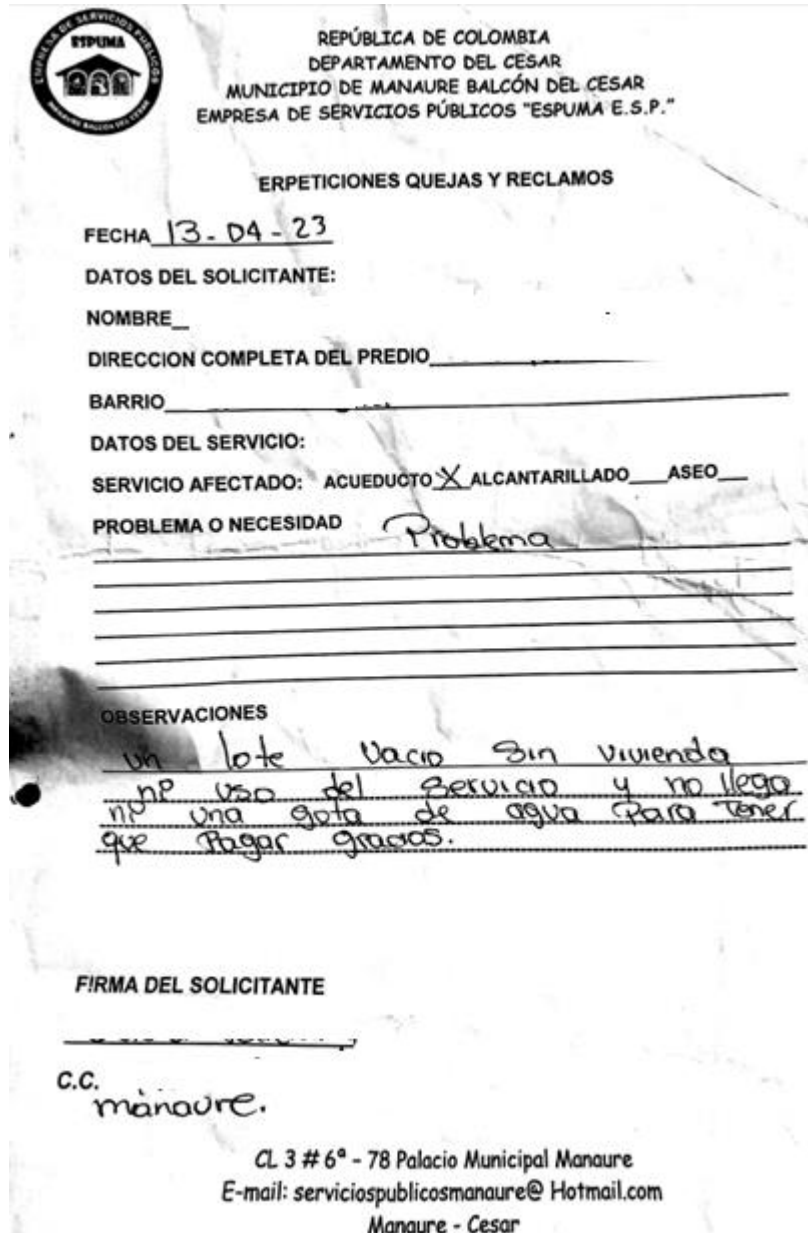 EMPRESA DE SERVICIOS PUBLICOS
ESPUMA
MANAURE BALCON DEL CESAR
REPÚBLICA DE COLOMBIA
DEPARTAMENTO DEL CESAR
MUNICIPIO DE MANAURE BALCÓN DEL CESAR
EMPRESA DE SERVICIOS PÚBLICOS "ESPUMA E.S.P."
ERPETICIONES QUEJAS Y RECLAMOS
FECHA 13-04-23
DATOS DEL SOLICITANTE:
NOMBRE
DIRECCION COMPLETA DEL PREDIO
BARRIO
DATOS DEL SERVICIO:
SERVICIO AFECTADO: ACUEDUCTO X ALCANTARILLADO ASEO
PROBLEMA O NECESIDAD Problema
OBSERVACIONES
un lote vacio sin vivienda
ni uso del servicio y no llega
ni una gota de agua para tener
que pagar gracias.
FIRMA DEL SOLICITANTE
C.C.
manaure.
CL 3 # 6ª - 78 Palacio Municipal Manaure
E-mail: serviciospublicosmanaure@ Hotmail.com
Manaure - Cesar